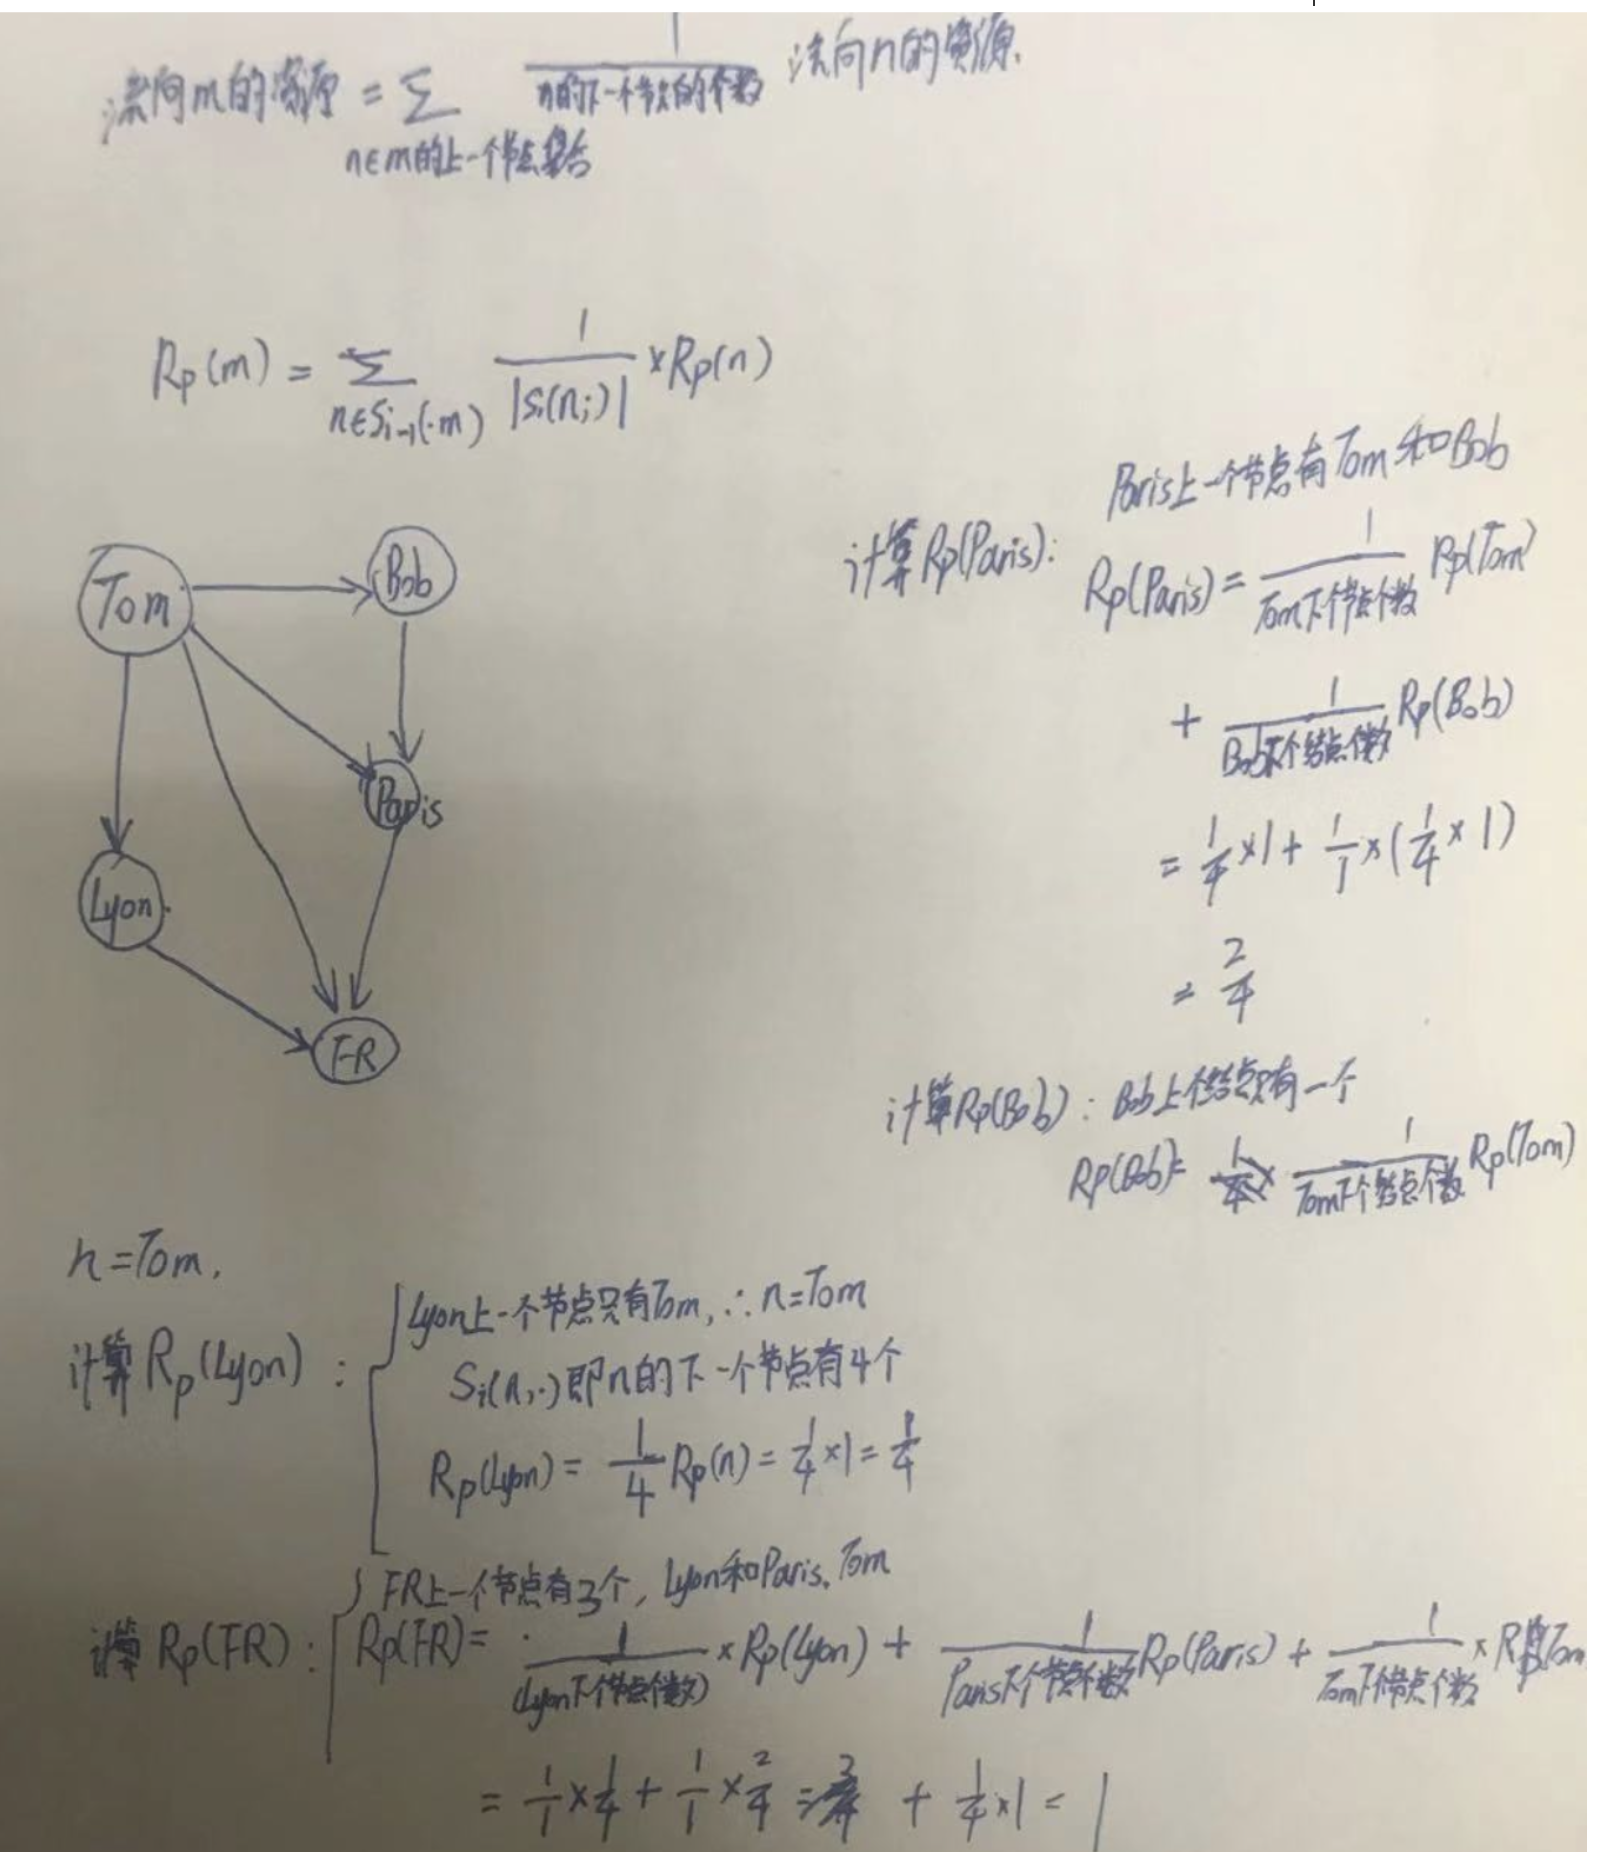 流向m的资源 = ∑ 1/n的下一个节点的个数 流向n的资源.
n∈m的上一个节点集合
Rp(m) = ∑ 1/|Si(n,·)| ×Rp(n)
n∈Si-1(·m)
Tom
Bob
Paris
Lyon
FR
Paris上一个节点有Tom和Bob
计算Rp(Paris):
Rp(Paris) = 1/Tom下个节点个数 Rp(Tom)
+ 1/Bob下个结点个数 Rp(Bob)
= 1/4 ×1 + 1/1 ×(1/4 × 1)
= 2/4
计算Rp(Bob): Bob上个结点只有一个
Rp(Bob)= 1/Tom下个结点个数 Rp(Tom)
n=Tom.
计算Rp(Lyon):
Lyon上一个节点只有Tom, ∴n=Tom
Si(n,·)即n的下一个节点有4个
Rp(Lyon) = 1/4 Rp(n) = 1/4 ×1 = 1/4
计算Rp(FR):
FR上一个节点有3个, Lyon和Paris, Tom
Rp(FR) = 1/(Lyon下个节点个数) ×Rp(Lyon) + 1/Paris下个节点个数 Rp(Paris) + 1/Tom下个节点个数 × Rp Tom
= 1/1 × 1/4 + 1/1 × 2/4 + 1/4 ×1 = 1